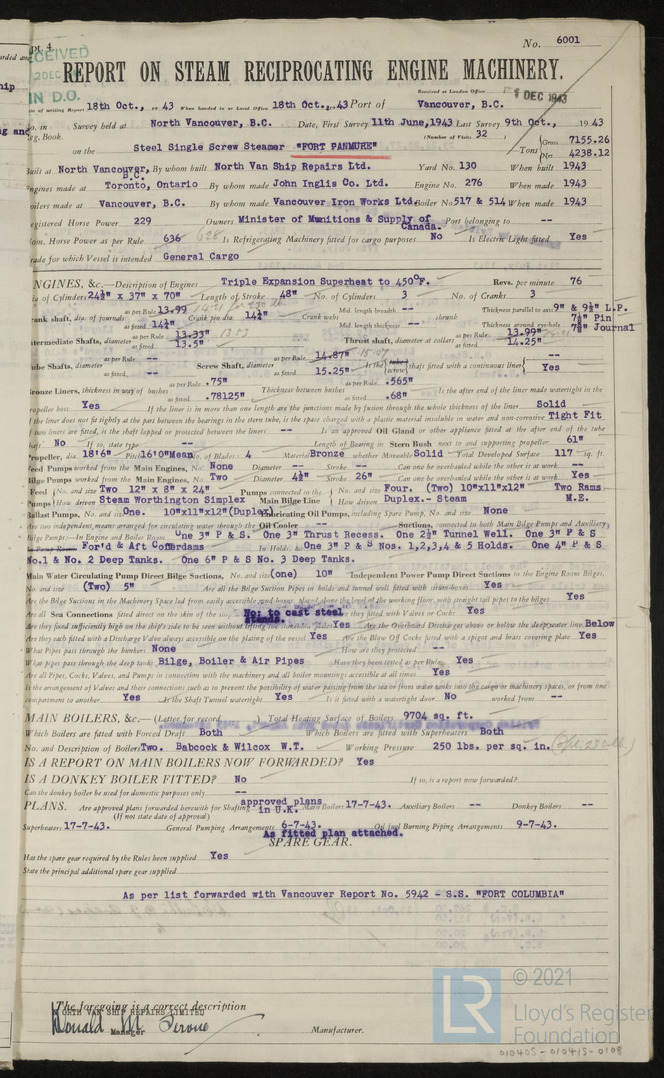 pt. 4.
No. 6001
RECEIVED
2 DEC
IN D.O.
REPORT ON STEAM RECIPROCATING ENGINE MACHINERY.
Received at London Office 1 DEC 1943
ate of writing Report 18th Oct., 19 43 When handed in at Local Office 18th Oct., 19 43 Port of Vancouver, B.C.
No. in Survey held at North Vancouver, B.C. Date, First Survey 11th June, 1943 Last Survey 9th Oct., 1943
eg. Book. (Number of Visits 32)
on the Steel Single Screw Steamer "FORT PANMURE" Tons Gross 7155.26 Net 4238.12
Built at North Vancouver, B.C. By whom built North Van Ship Repairs Ltd. Yard No. 130 When built 1943
Engines made at Toronto, Ontario By whom made John Inglis Co. Ltd. Engine No. 276 When made 1943
oilers made at Vancouver, B.C. By whom made Vancouver Iron Works Ltd. Boiler No. 517 & 514 When made 1943
egistered Horse Power 229 Owners Minister of Munitions & Supply of Canada. Port belonging to --
om. Horse Power as per Rule 636 628 Is Refrigerating Machinery fitted for cargo purposes No Is Electric Light fitted Yes
rade for which Vessel is intended General Cargo
ENGINES, &c.—Description of Engines Triple Expansion Superheat to 450°F. Revs. per minute 76
ia of Cylinders 24½" x 37" x 70" Length of Stroke 48" No. of Cylinders 3 No. of Cranks 3
rank shaft, dia. of journals as per Rule 13.99 as fitted 14¼" Crank pin dia. 14¼" Mid. length breadth -- Mid. length thickness -- Thickness parallel to axis 9" & 9½" L.P. shrunk Thickness around eyehole 7⅛" Pin 7⅞" Journal
ntermediate Shafts, diameter as per Rule 13.33" 13.53 as fitted 13.5" Thrust shaft, diameter at collars as per Rule 13.99" as fitted 14.25"
ube Shafts, diameter as per Rule -- as fitted -- Screw Shaft, diameter as per Rule 14.87" 15.07 as fitted 15.25" Is the tube screw shaft fitted with a continuous liner -- Yes
ronze Liners, thickness in way of bushes as per Rule .75" as fitted .78125" Thickness between bushes as per Rule .565" as fitted .68" Is the after end of the liner made watertight in the
ropeller boss Yes If the liner is in more than one length are the junctions made by fusion through the whole thickness of the liner Solid
f the liner does not fit tightly at the part between the bearings in the stern tube, is the space charged with a plastic material insoluble in water and non-corrosive Tight Fit
f two liners are fitted, is the shaft lapped or protected between the liners -- Is an approved Oil Gland or other appliance fitted at the after end of the tube
haft No If so, state type -- Length of Bearing in Stern Bush next to and supporting propeller 61"
ropeller, dia. 18'6" Pitch 16'0" Mean No. of Blades 4 Material Bronze whether Moveable Solid Total Developed Surface 117 sq. ft.
eed Pumps worked from the Main Engines, No. None Diameter -- Stroke -- Can one be overhauled while the other is at work --
ilge Pumps worked from the Main Engines, No. Two Diameter 4½" Stroke 26" Can one be overhauled while the other is at work Yes
Feed Pumps No. and size Two 12" x 8" x 24" How driven Steam Worthington Simplex Pumps connected to the Main Bilge Line No. and size Four. (Two) 10"x11"x12" Two Rams How driven Duplex.- Steam M.E.
allast Pumps, No. and size One. 10"x11"x12" (Duplex) Lubricating Oil Pumps, including Spare Pump, No. and size None
Are two independent means arranged for circulating water through the Oil Cooler -- Suctions, connected to both Main Bilge Pumps and Auxiliary
Bilge Pumps:—In Engine and Boiler Room One 3" P & S. One 3" Thrust Recess. One 2½" Tunnel Well. One 3" P & S
In Pump Room For'd & Aft Cofferdams In Holds, &c One 3" P & S Nos. 1,2,3,4 & 5 Holds. One 4" P & S
No.1 & No. 2 Deep Tanks. One 6" P & S No. 3 Deep Tanks.
Main Water Circulating Pump Direct Bilge Suctions, No. and size (one) 10" Independent Power Pump Direct Suctions to the Engine Room Bilges,
No. and size (Two) 5" Are all the Bilge Suction Pipes in holds and tunnel well fitted with strum-boxes Yes
Are the Bilge Suctions in the Machinery Space led from easily accessible mud-boxes, placed above the level of the working floor, with straight tail pipes to the bilges Yes
Are all Sea Connections fitted direct on the skin of the ship No: to cast steel stands. Are they fitted with Valves or Cocks Yes
Are they fixed sufficiently high on the ship's side to be seen without lifting the platform plates Yes Are the Overboard Discharges above or below the deep water line Below
Are they each fitted with a Discharge Valve always accessible on the plating of the vessel Yes Are the Blow Off Cocks fitted with a spigot and brass covering plate Yes
What Pipes pass through the bunkers None How are they protected --
What pipes pass through the deep tanks Bilge, Boiler & Air Pipes Have they been tested as per Rule Yes
Are all Pipes, Cocks, Valves, and Pumps in connection with the machinery and all boiler mountings accessible at all times Yes
Is the arrangement of Valves and their connections such as to prevent the possibility of water passing from the sea or from water tanks into the cargo or machinery spaces, or from one
compartment to another Yes Is the Shaft Tunnel watertight Yes Is it fitted with a watertight door No worked from --
MAIN BOILERS, &c.—(Letter for record ) Total Heating Surface of Boilers 9704 sq. ft.
Which Boilers are fitted with Forced Draft Both Which Boilers are fitted with Superheaters Both
No. and Description of Boilers Two. Babcock & Wilcox W.T. Working Pressure 250 lbs. per sq. in.
IS A REPORT ON MAIN BOILERS NOW FORWARDED? Yes
IS A DONKEY BOILER FITTED? No If so, is a report now forwarded?
Can the donkey boiler be used for domestic purposes only --
PLANS. Are approved plans forwarded herewith for Shafting approved plans in U.K. Main Boilers 17-7-43. Auxiliary Boilers -- Donkey Boilers --
(If not state date of approval)
Superheaters 17-7-43. General Pumping Arrangements 6-7-43. Oil fuel Burning Piping Arrangements 9-7-43.
As fitted plan attached.
SPARE GEAR.
Has the spare gear required by the Rules been supplied Yes
State the principal additional spare gear supplied
As per list forwarded with Vancouver Report No. 5942 - S.S. "FORT COLUMBIA"
The foregoing is a correct description
NORTH VAN SHIP REPAIRS LIMITED
Manager
Manufacturer.
© 2021
LR
Lloyd's Register
Foundation
010405-010415-0108